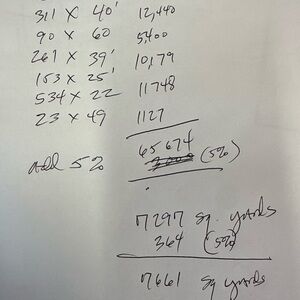 311 X 40' 12,440
90 X 60 5,400
261 X 39' 10,179
153 X 25'
534 X 22 11748
23 X 49 1127
65674
add 5% (5%)
7297 sq. yards
364 (5%)
7661 sq yards